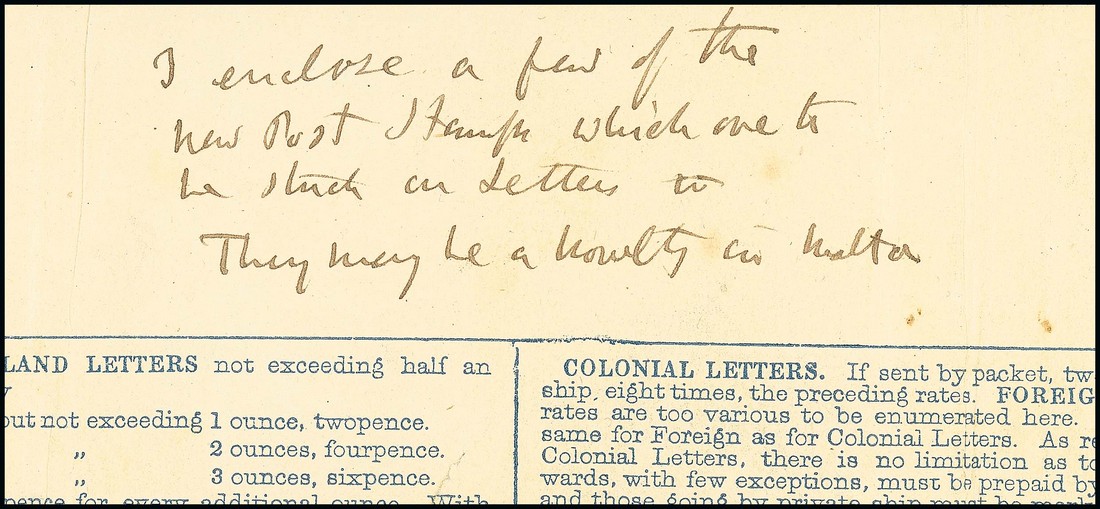 I enclose a few of the
new Post Stamps which are to
be stuck on Letters to
They may be a novelty in Malta
LAND LETTERS not exceeding half an
y
out not exceeding 1 ounce, twopence.
„ 2 ounces, fourpence.
„ 3 ounces, sixpence.
pence for every additional ounce. With
COLONIAL LETTERS. If sent by packet, tw
ship, eight times, the preceding rates. FOREIG
rates are too various to be enumerated here.
same for Foreign as for Colonial Letters. As re
Colonial Letters, there is no limitation as to
wards, with few exceptions, must be prepaid by
and those going by private ship must be mark